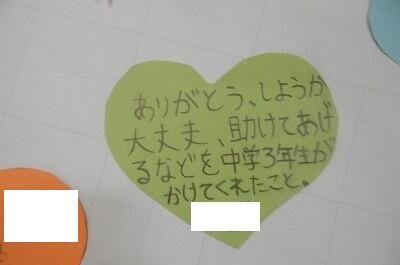 ありがとう、しようか
大丈夫、助けてあげ
るなどを中学3年生が
かけてくれたこと。